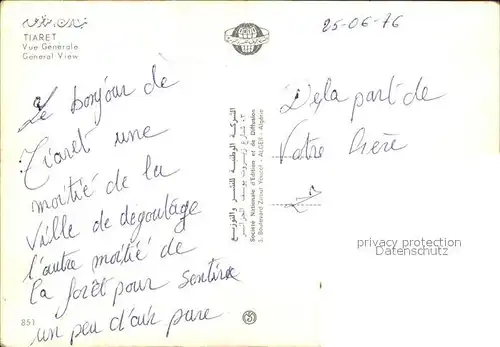 تيارت، منظر عام
TIARET
Vue Générale
General View
25-06-76
Le bonjour de
Tiaret une
moitié de la
ville de degoutage
l'autre moitié de
la forêt pour sentire
un peu d'air pure
De la part de
Votre frère
الشركة الوطنية للنشر والتوزيع
٣، شارع زيروت يوسف الجزائر
Société Nationale d'Edition et de Diffusion
3, Boulevard Zirout Youcef - ALGER - Algérie
privacy protection
Datenschutz
851